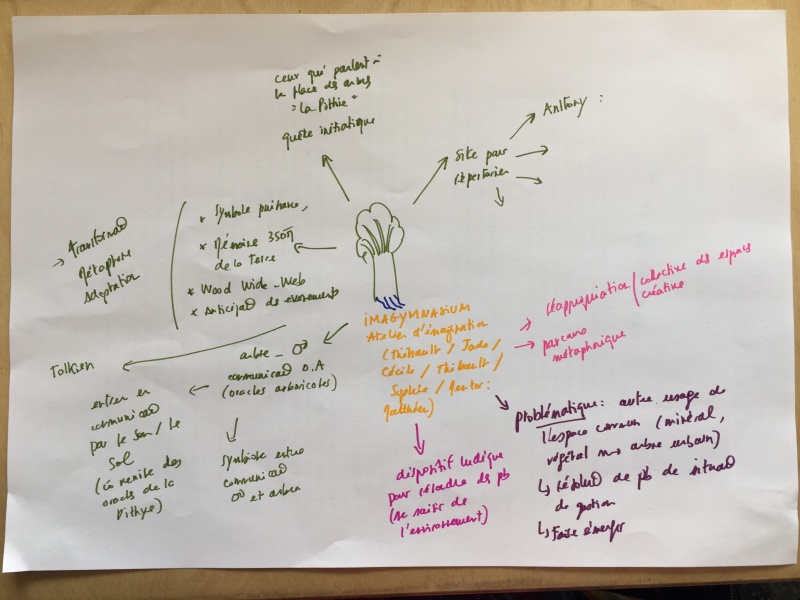 ceux qui parlent à
la place des arbres
"La Pithie"
quête initiatique
Site pour
répertorier
Anthony :
* Symbole puissance,
* Mémoire 350
de la Terre
* Wood Wide-Web
* anticipa° de évènements
→ Transforma°
Métaphore
Adaptation
iMAGYMNASIUM
Atelier d'imagination
(Thibault / Jade /
Cécile / Thibault /
Sophie / Mentor :
Matthieu)
→ réappropriation / collective des espaces
créative
→ parcours
métaphorique
arbre _
communica° O.A
(oracles arboricoles)
Tolkien
entrer en
communica°
par le son / le
Sol
(en
oracles de la
Pithye)
Symbiose entre
communica°
et arbre
dispositif ludique
pour résoudre des pb
(se saisir de
l'environnement)
problématique : autre usage de
l'espace commun (minéral,
végétal → arbre urbain)
↳ résolu° de pb de situa°
de gestion
↳ Faire émerger